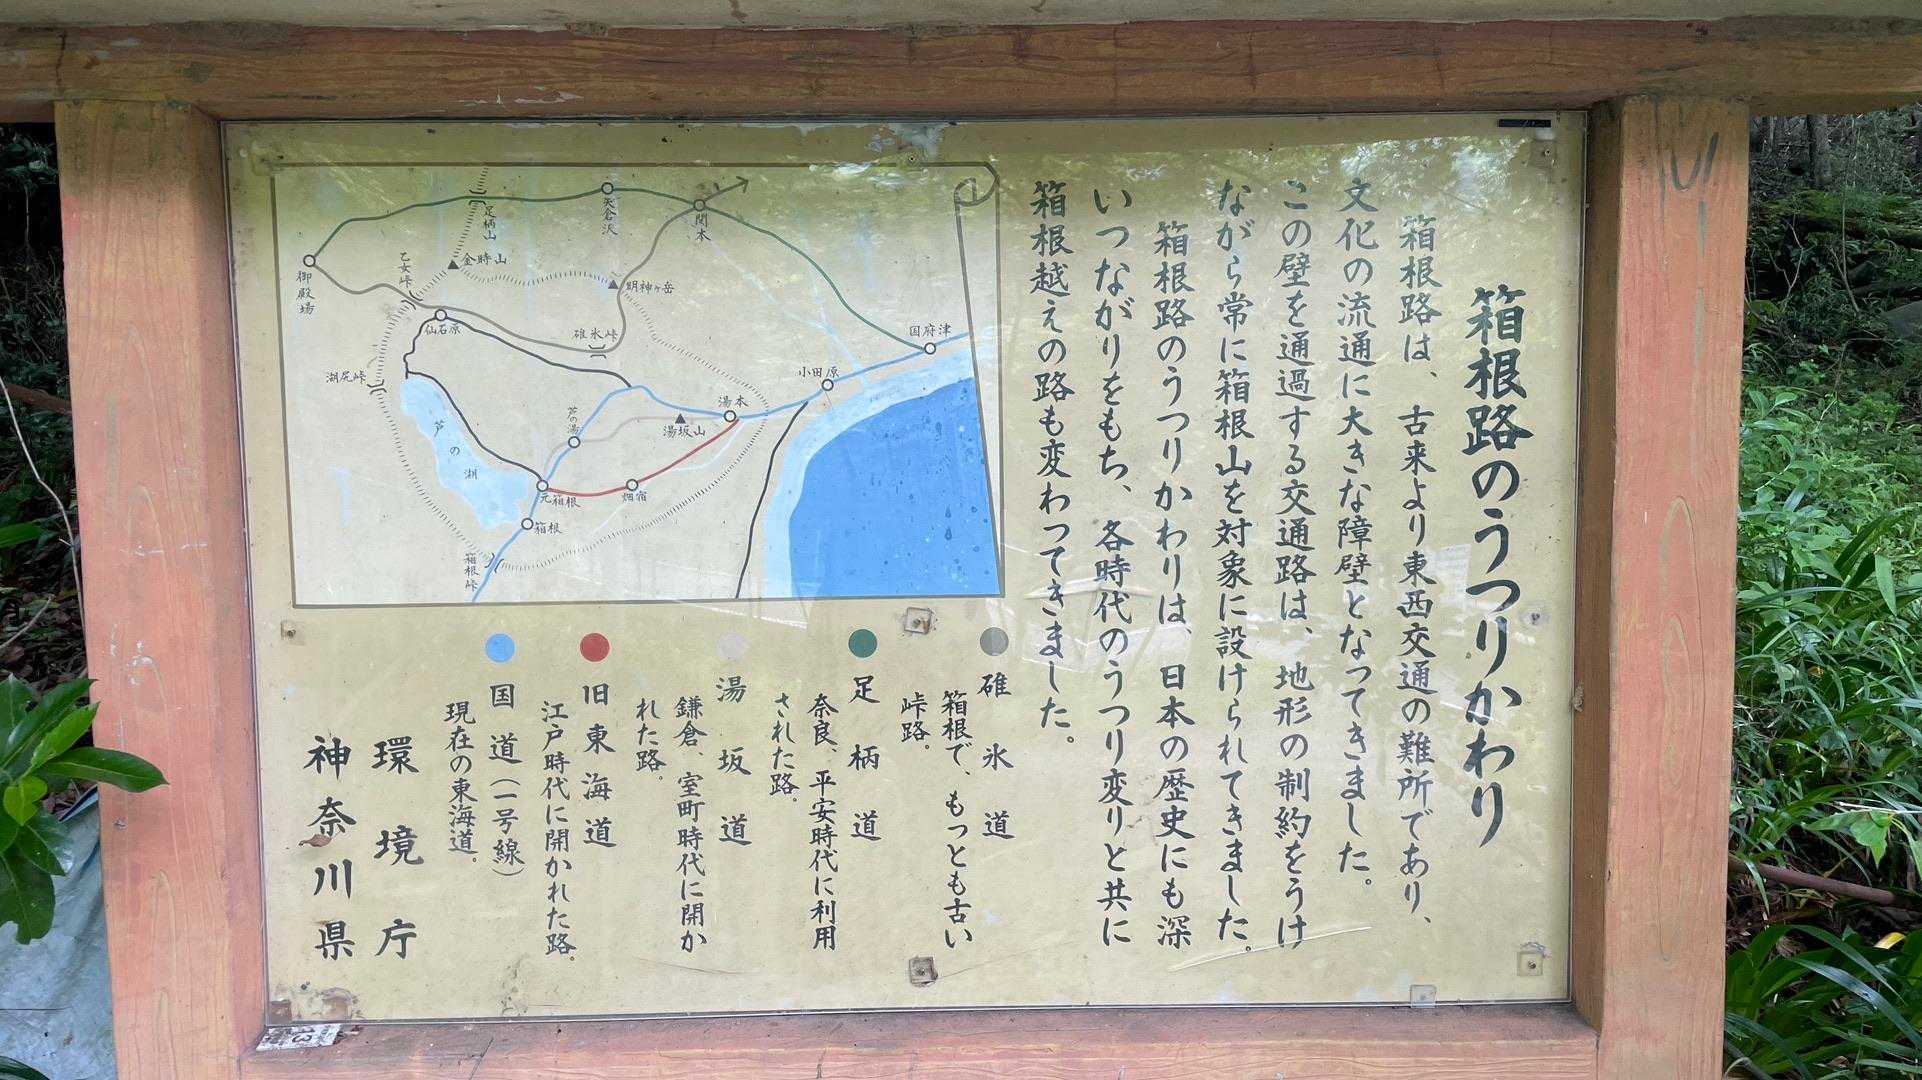 箱根路のうつりかわり
箱根路は、古来より東西交通の難所であり、
文化の流通に大きな障壁となってきました。
この壁を通過する交通路は、地形の制約をうけ
ながら常に箱根山を対象に設けられてきました。
箱根路のうつりかわりは、日本の歴史にも深
いつながりをもち、各時代のうつり変りと共に
箱根越えの路も変わってきました。
碓氷道
箱根で、もっとも古い
峠路。
足柄道
奈良、平安時代に利用
された路。
湯坂道
鎌倉、室町時代に開か
れた路。
旧東海道
江戸時代に開かれた路。
国道(一号線)
現在の東海道。
環境庁
神奈川県
御殿場
足柄山
矢倉沢
関本
乙女峠
金時山
明神ヶ岳
仙石原
碓氷峠
国府津
湖尻峠
小田原
芦の湖
芦の湯
湯坂山
湯本
元箱根
畑宿
箱根
箱根峠